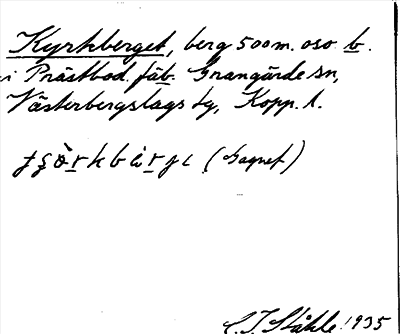 Kyrkberget, berg 500 m. oso b.
i Prästbod. fäb. Grangärde sn,
Västerbergslags dg, Kopp. l.
(Gagnef)
C.I. Ståhle 1935